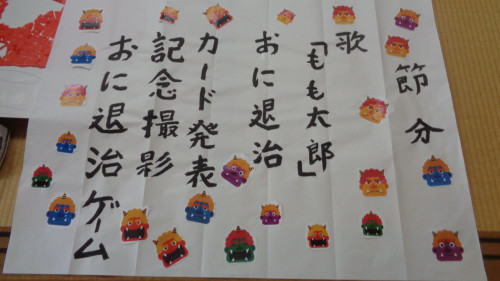 節分
歌
「もも太郎」
おに退治
カード発表
記念撮影
おに退治ゲーム